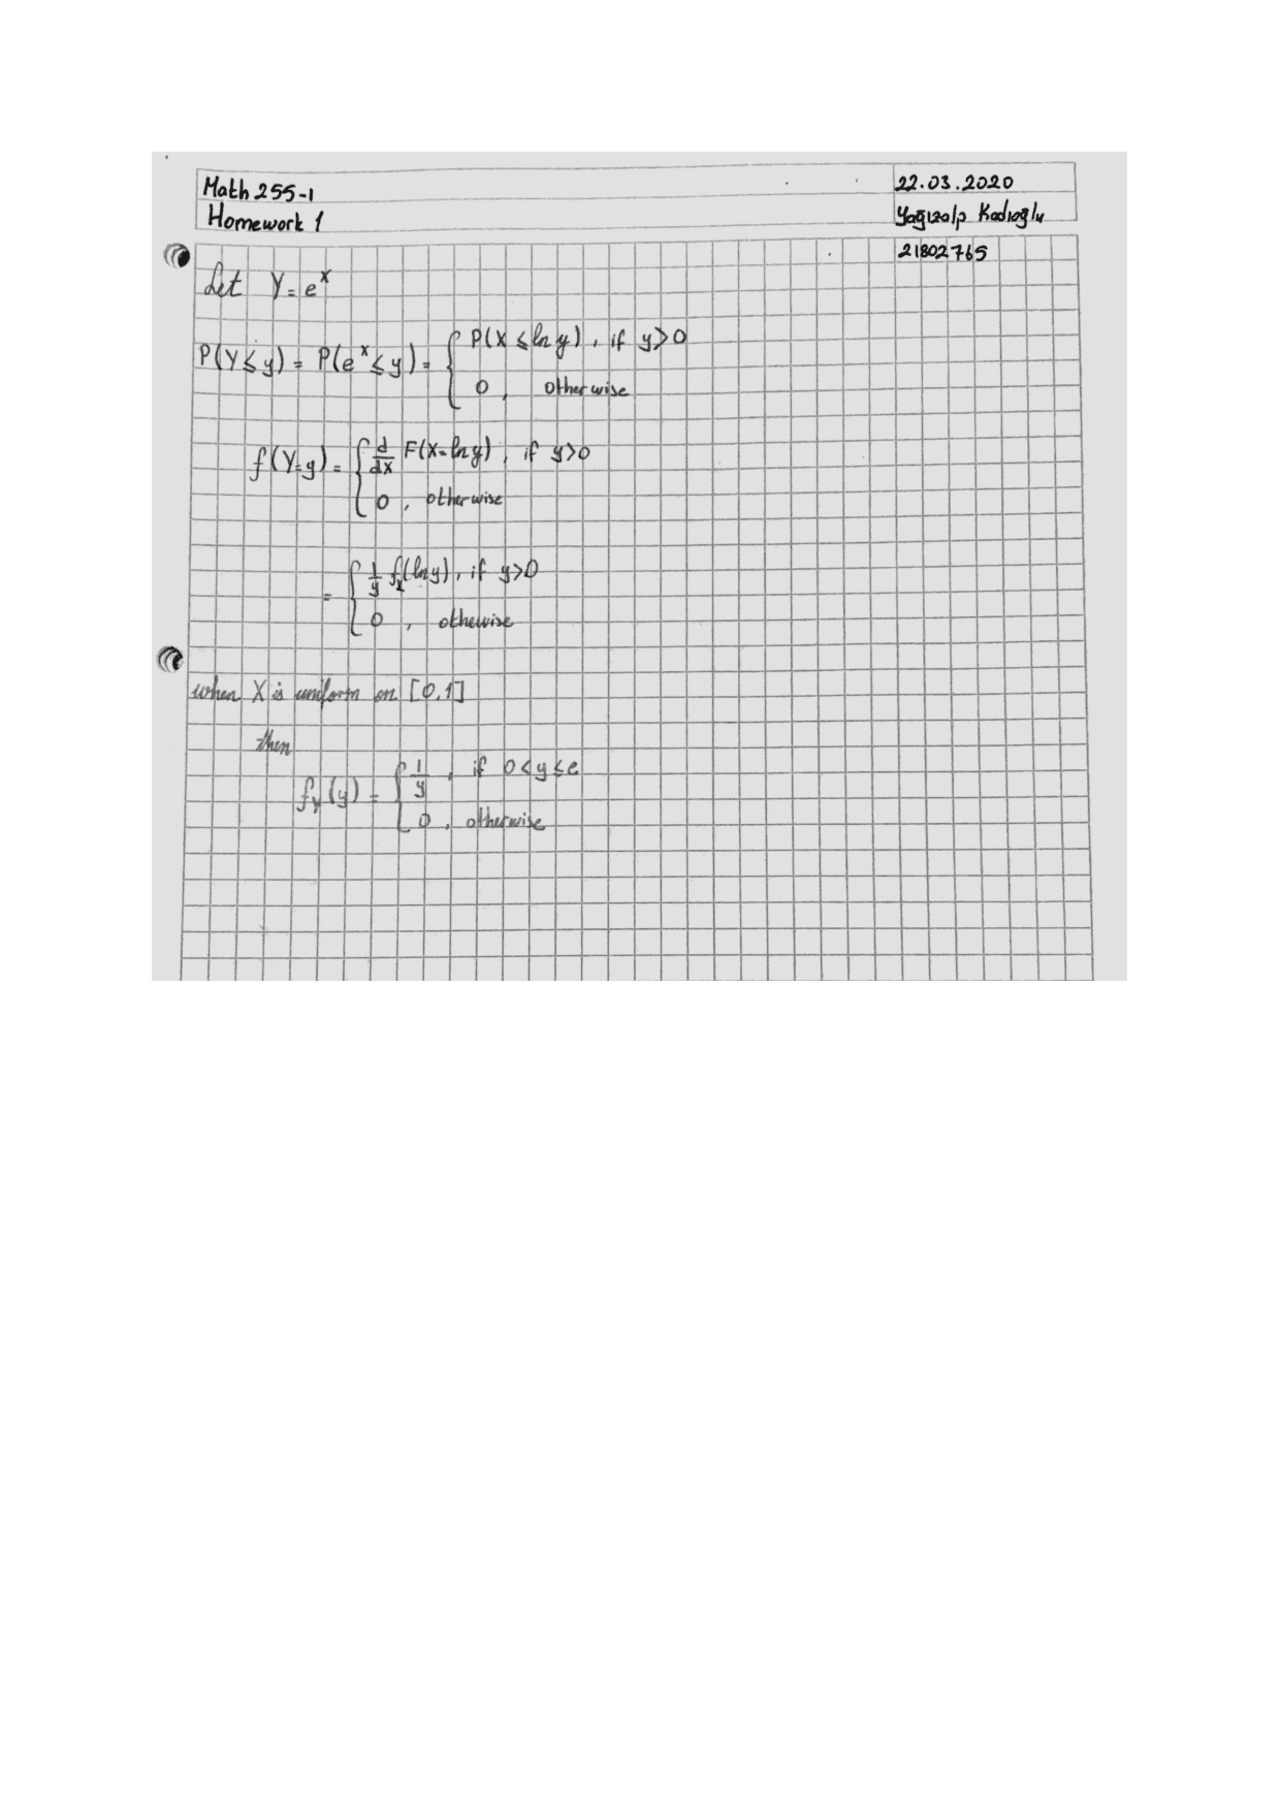 Math 255-1
22.03.2020
Homework 1
Yağızalp Kadıoğlu
21802765
Let Y = e^x
P(Y ≤ y) = P(e^x ≤ y) = { P(X ≤ ln y), if y > 0
0, otherwise
f(Y=y) = { d/dx F(X=ln y), if y>0
0, otherwise
= { 1/y f_x(ln y), if y>0
0, othewise
when X is uniform on [0,1]
then
f_Y(y) = { 1/y, if 0<y≤e
0, otherwise